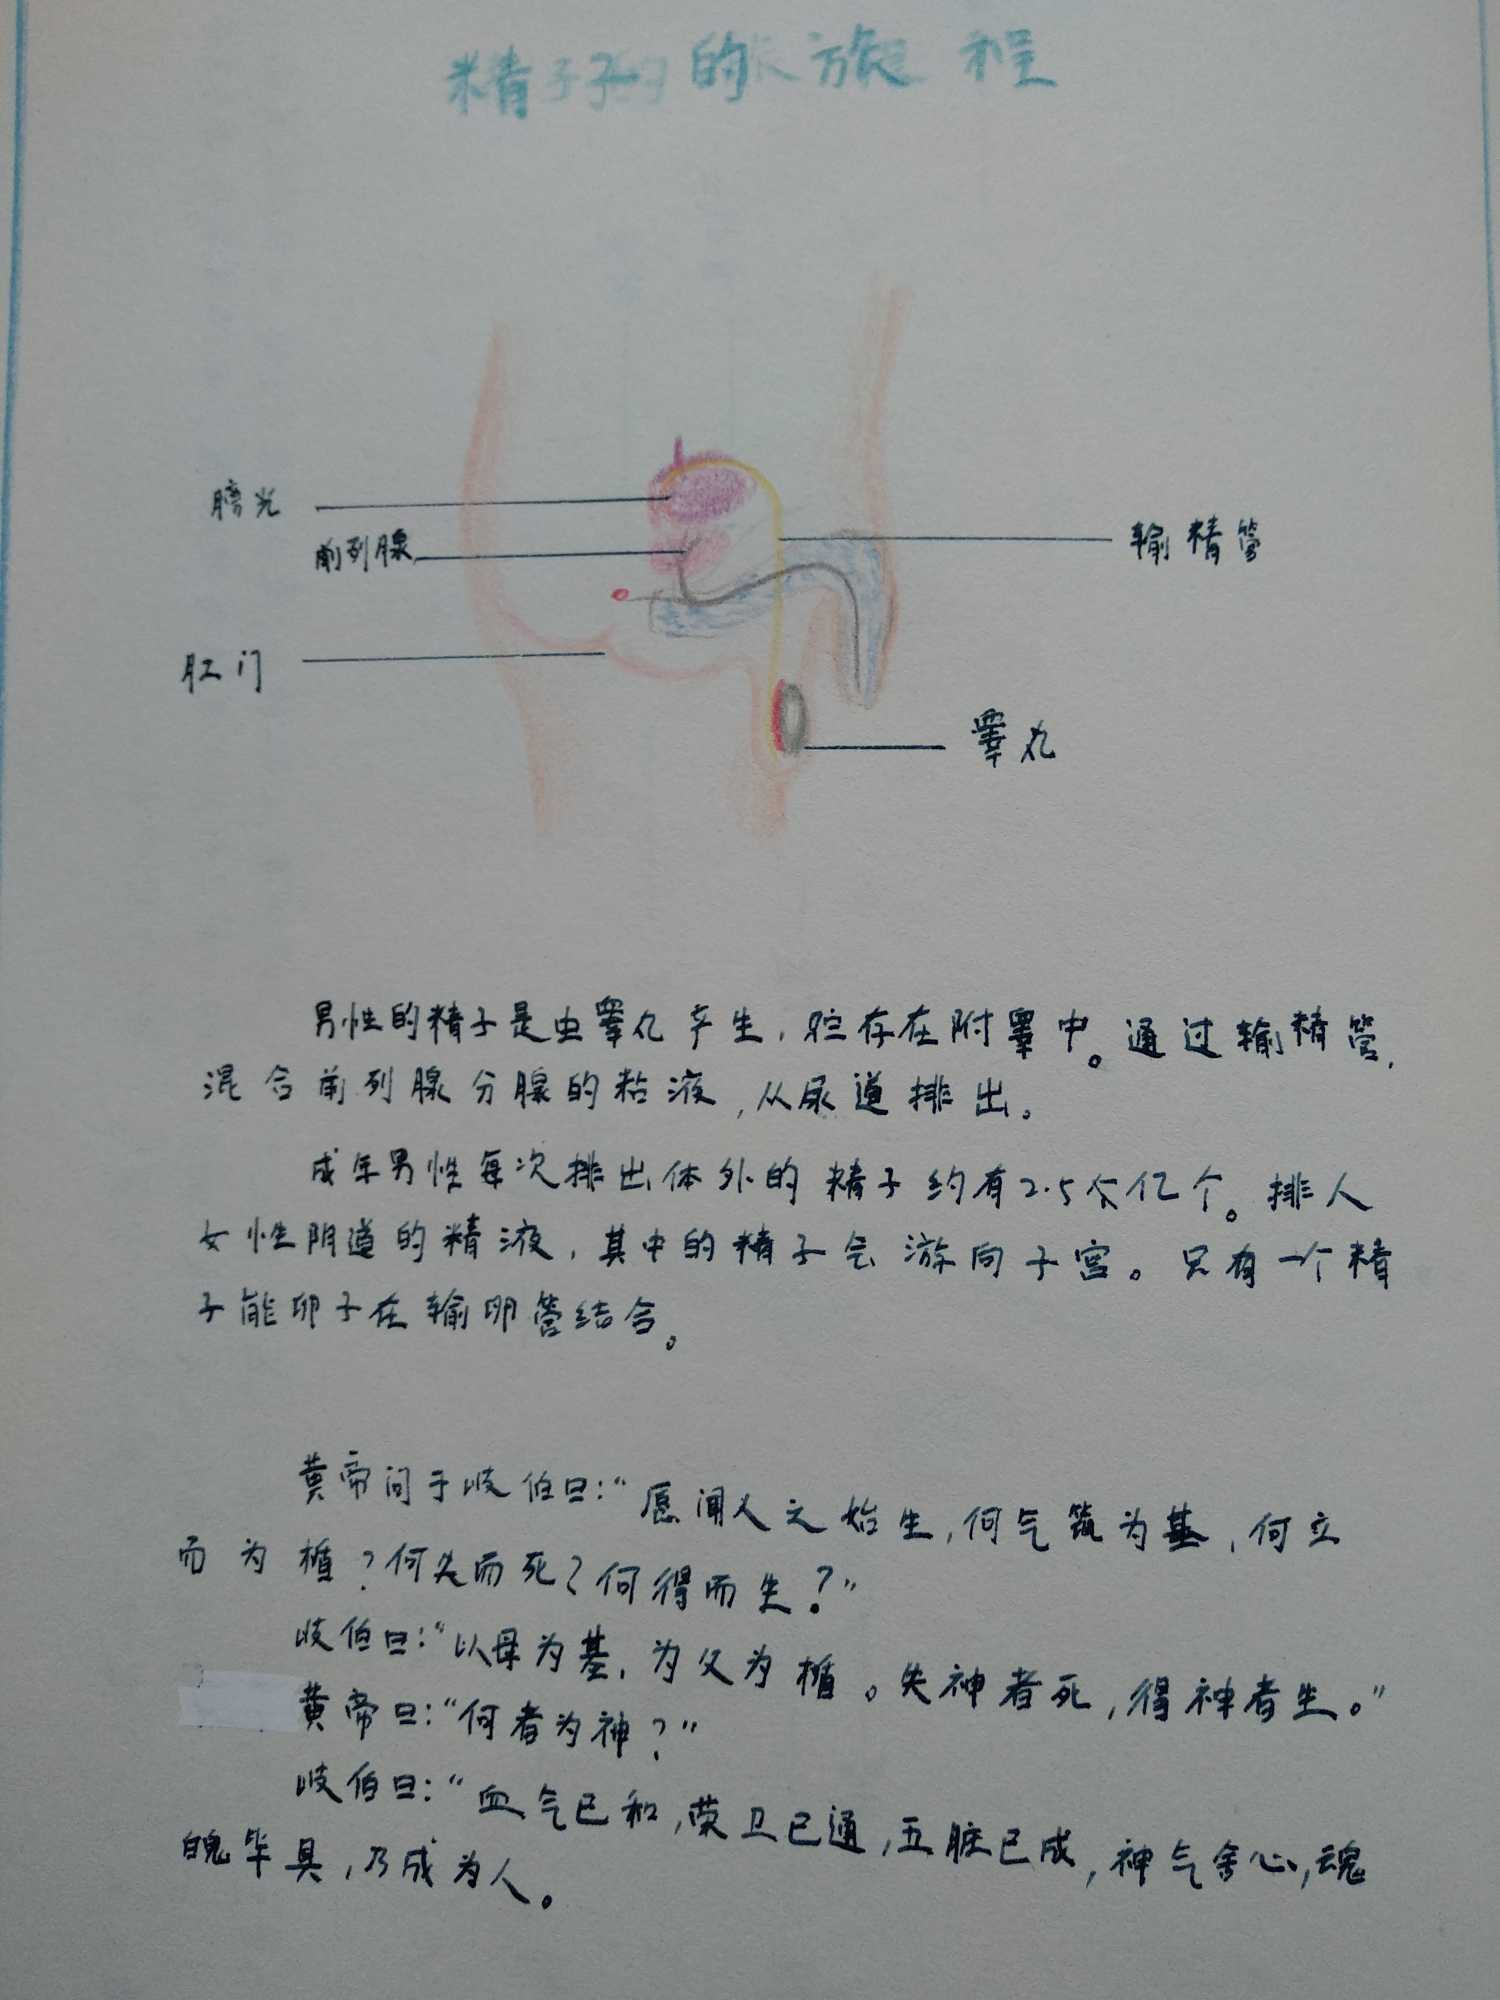 精子的旅程
膀光
前列腺
肛门
输精管
睾丸
男性的精子是虫睾丸产生，贮存在附睾中。通过输精管，
混合前列腺分腺的粘液，从尿道排出。
成年男性每次排出体外的精子约有2.5个亿个。排人
女性阴道的精液，其中的精子会游向子宫。只有一个精
子能卵子在输卵管结合。
黄帝问于岐伯曰：“愿闻人之始生，何气筑为基，何立
而为楯？何失而死？何得而生？”
岐伯曰：“以母为基，为父为楯。失神者死，得神者生。”
黄帝曰：“何者为神？”
岐伯曰：“血气已和，荣卫已通，五脏已成，神气舍心，魂
魄毕具，乃成为人。